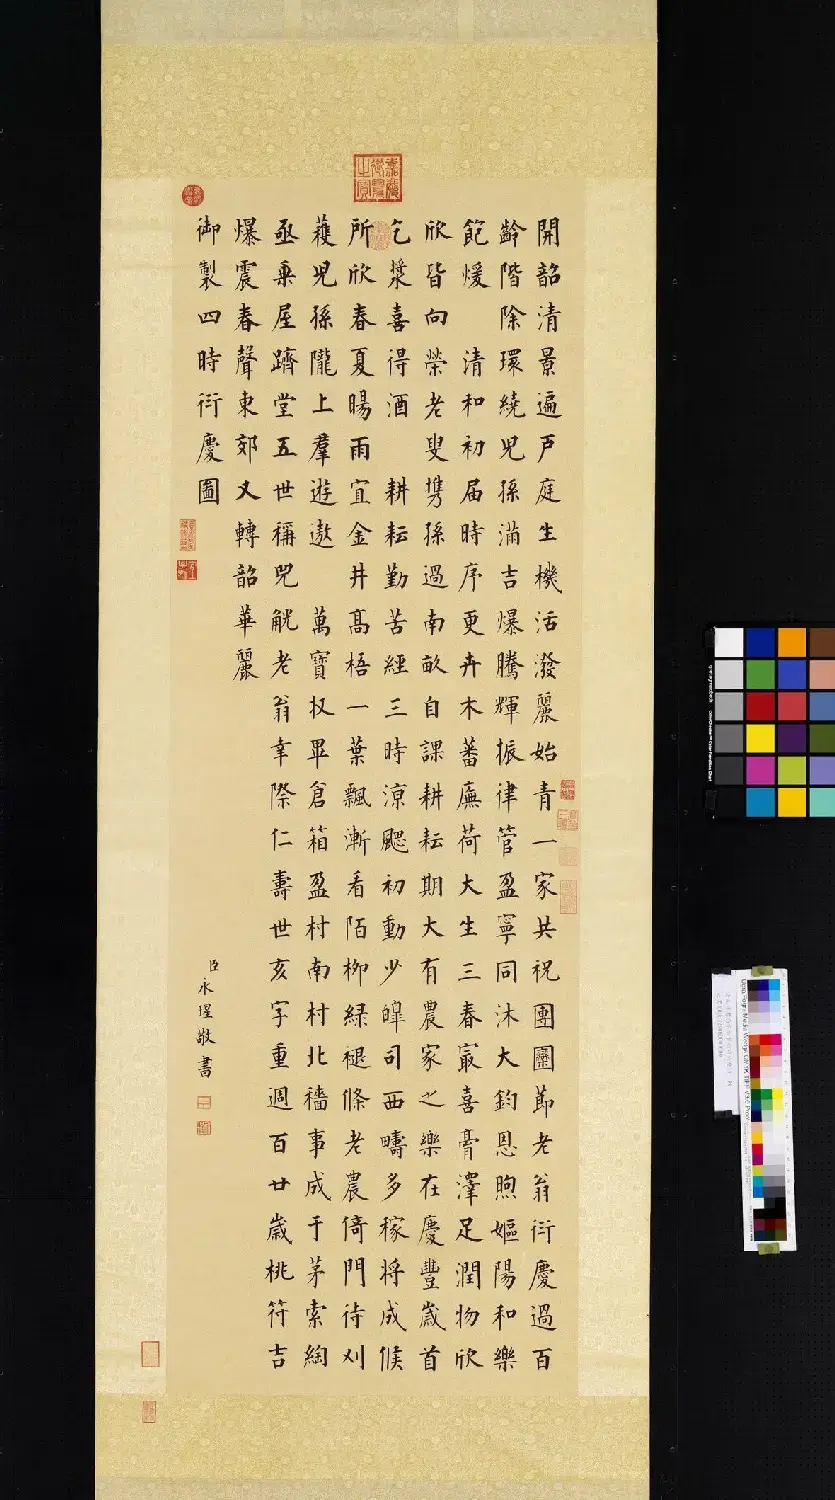 嘉慶御覽之寶
開韶清景遍戸庭生機活潑麗始青一家共祝團圞節老翁衍慶過百
齡階除環繞兒孫滿吉爆騰輝振律管盈寧同沐大鈞恩煦嫗陽和樂
飽煖 清和初届時序更卉木蕃廡荷大生三春最喜膏澤足潤物欣
欣皆向榮老叟携孫過南畝自課耕耘期大有農家之樂在慶豐歲首
乞漿喜得酒 耕耘勤苦經三時涼颸初動少皥司西疇多稼將成候
所欣春夏暘雨宜金井髙梧一葉飄漸看陌柳綠褪條老農倚門待刈
穫兒孫隴上羣遊遨 萬寶収畢倉箱盈村南村北穡事成于茅索綯
亟乗屋躋堂五世稱兕觥老翁幸際仁壽世亥字重週百廿歲桃符吉
爆震春聲東郊又轉韶華麗
御製四時衍慶圖
臣永瑆敬書